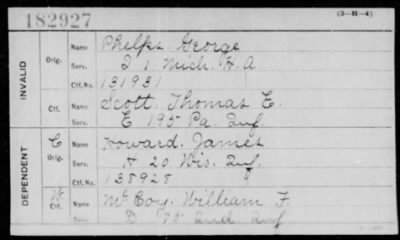 182927
(3-H-4)
INVALID
Orig.
Name Phelps, George
Serv. I 1 Mich. H. A.
Ctf. No. 131931
Ctf.
Name Scott, Thomas E.
Serv. E 195 Pa. Inf.
DEPENDENT
C
Orig.
Name Howard, James
Serv. H 20 Wis. Inf.
Ctf. No. 138928
Ctf.
Name McCoy, William F.
Serv. D Ind Inf